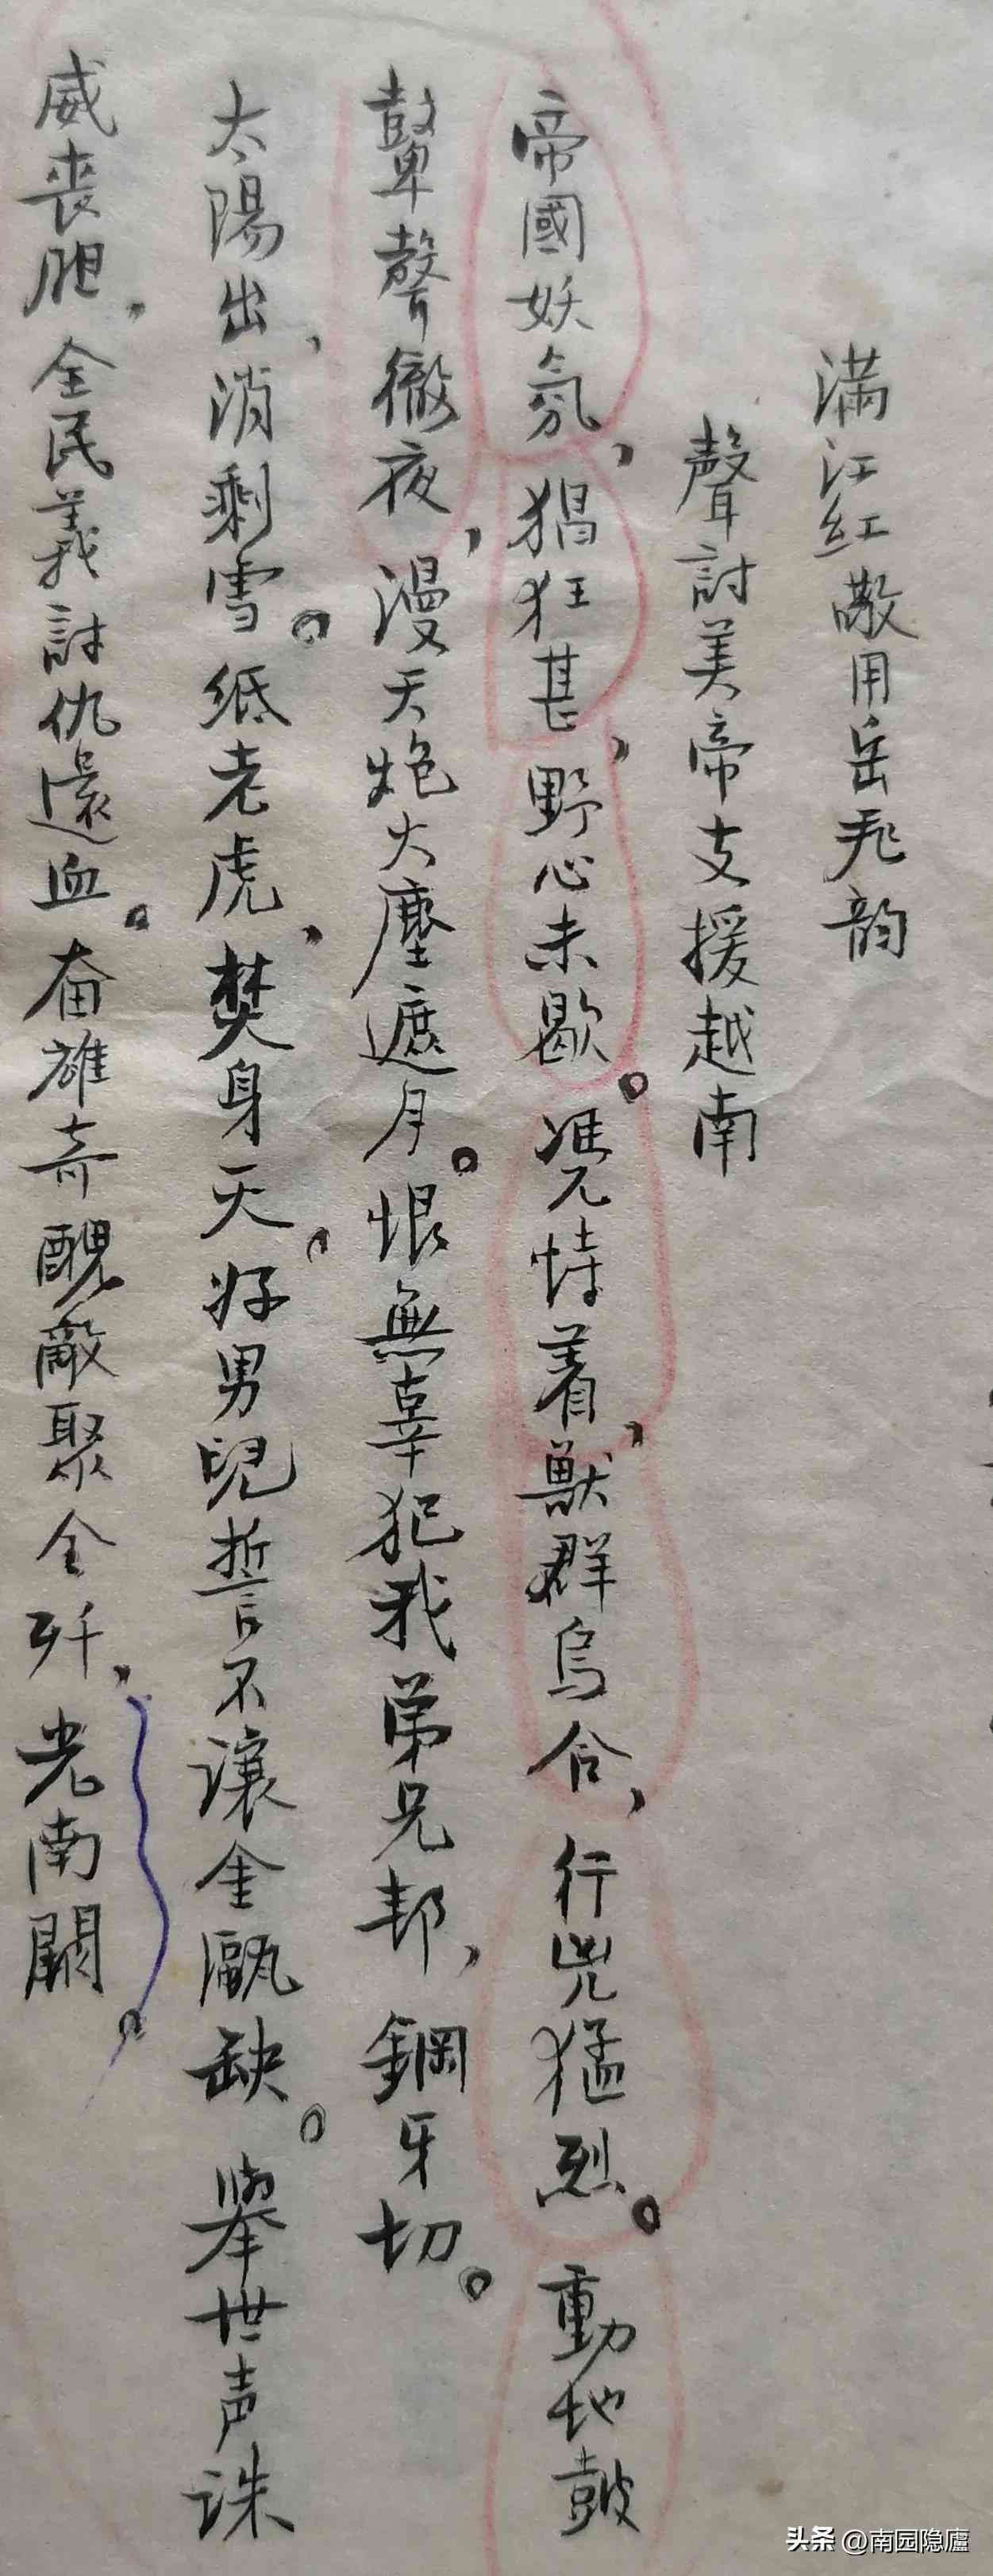 滿江红敬用岳飛韵
聲討美帝支援越南
帝國妖氛，猖狂甚，野心未歇。凭恃着，獸群烏合，行兇猛烈。動地鼓
鼙聲徹夜，漫天炮火塵遮月。恨無辜犯我弟兄邦，鋼牙切。
太陽出，消剩雪。紙老虎，焚身灭。好男兒誓不讓金甌缺。舉世声誅
威喪胆，全民義討仇還血。奋雄奇醜敵聚全歼，光南闕。
头条 @南园隐廬